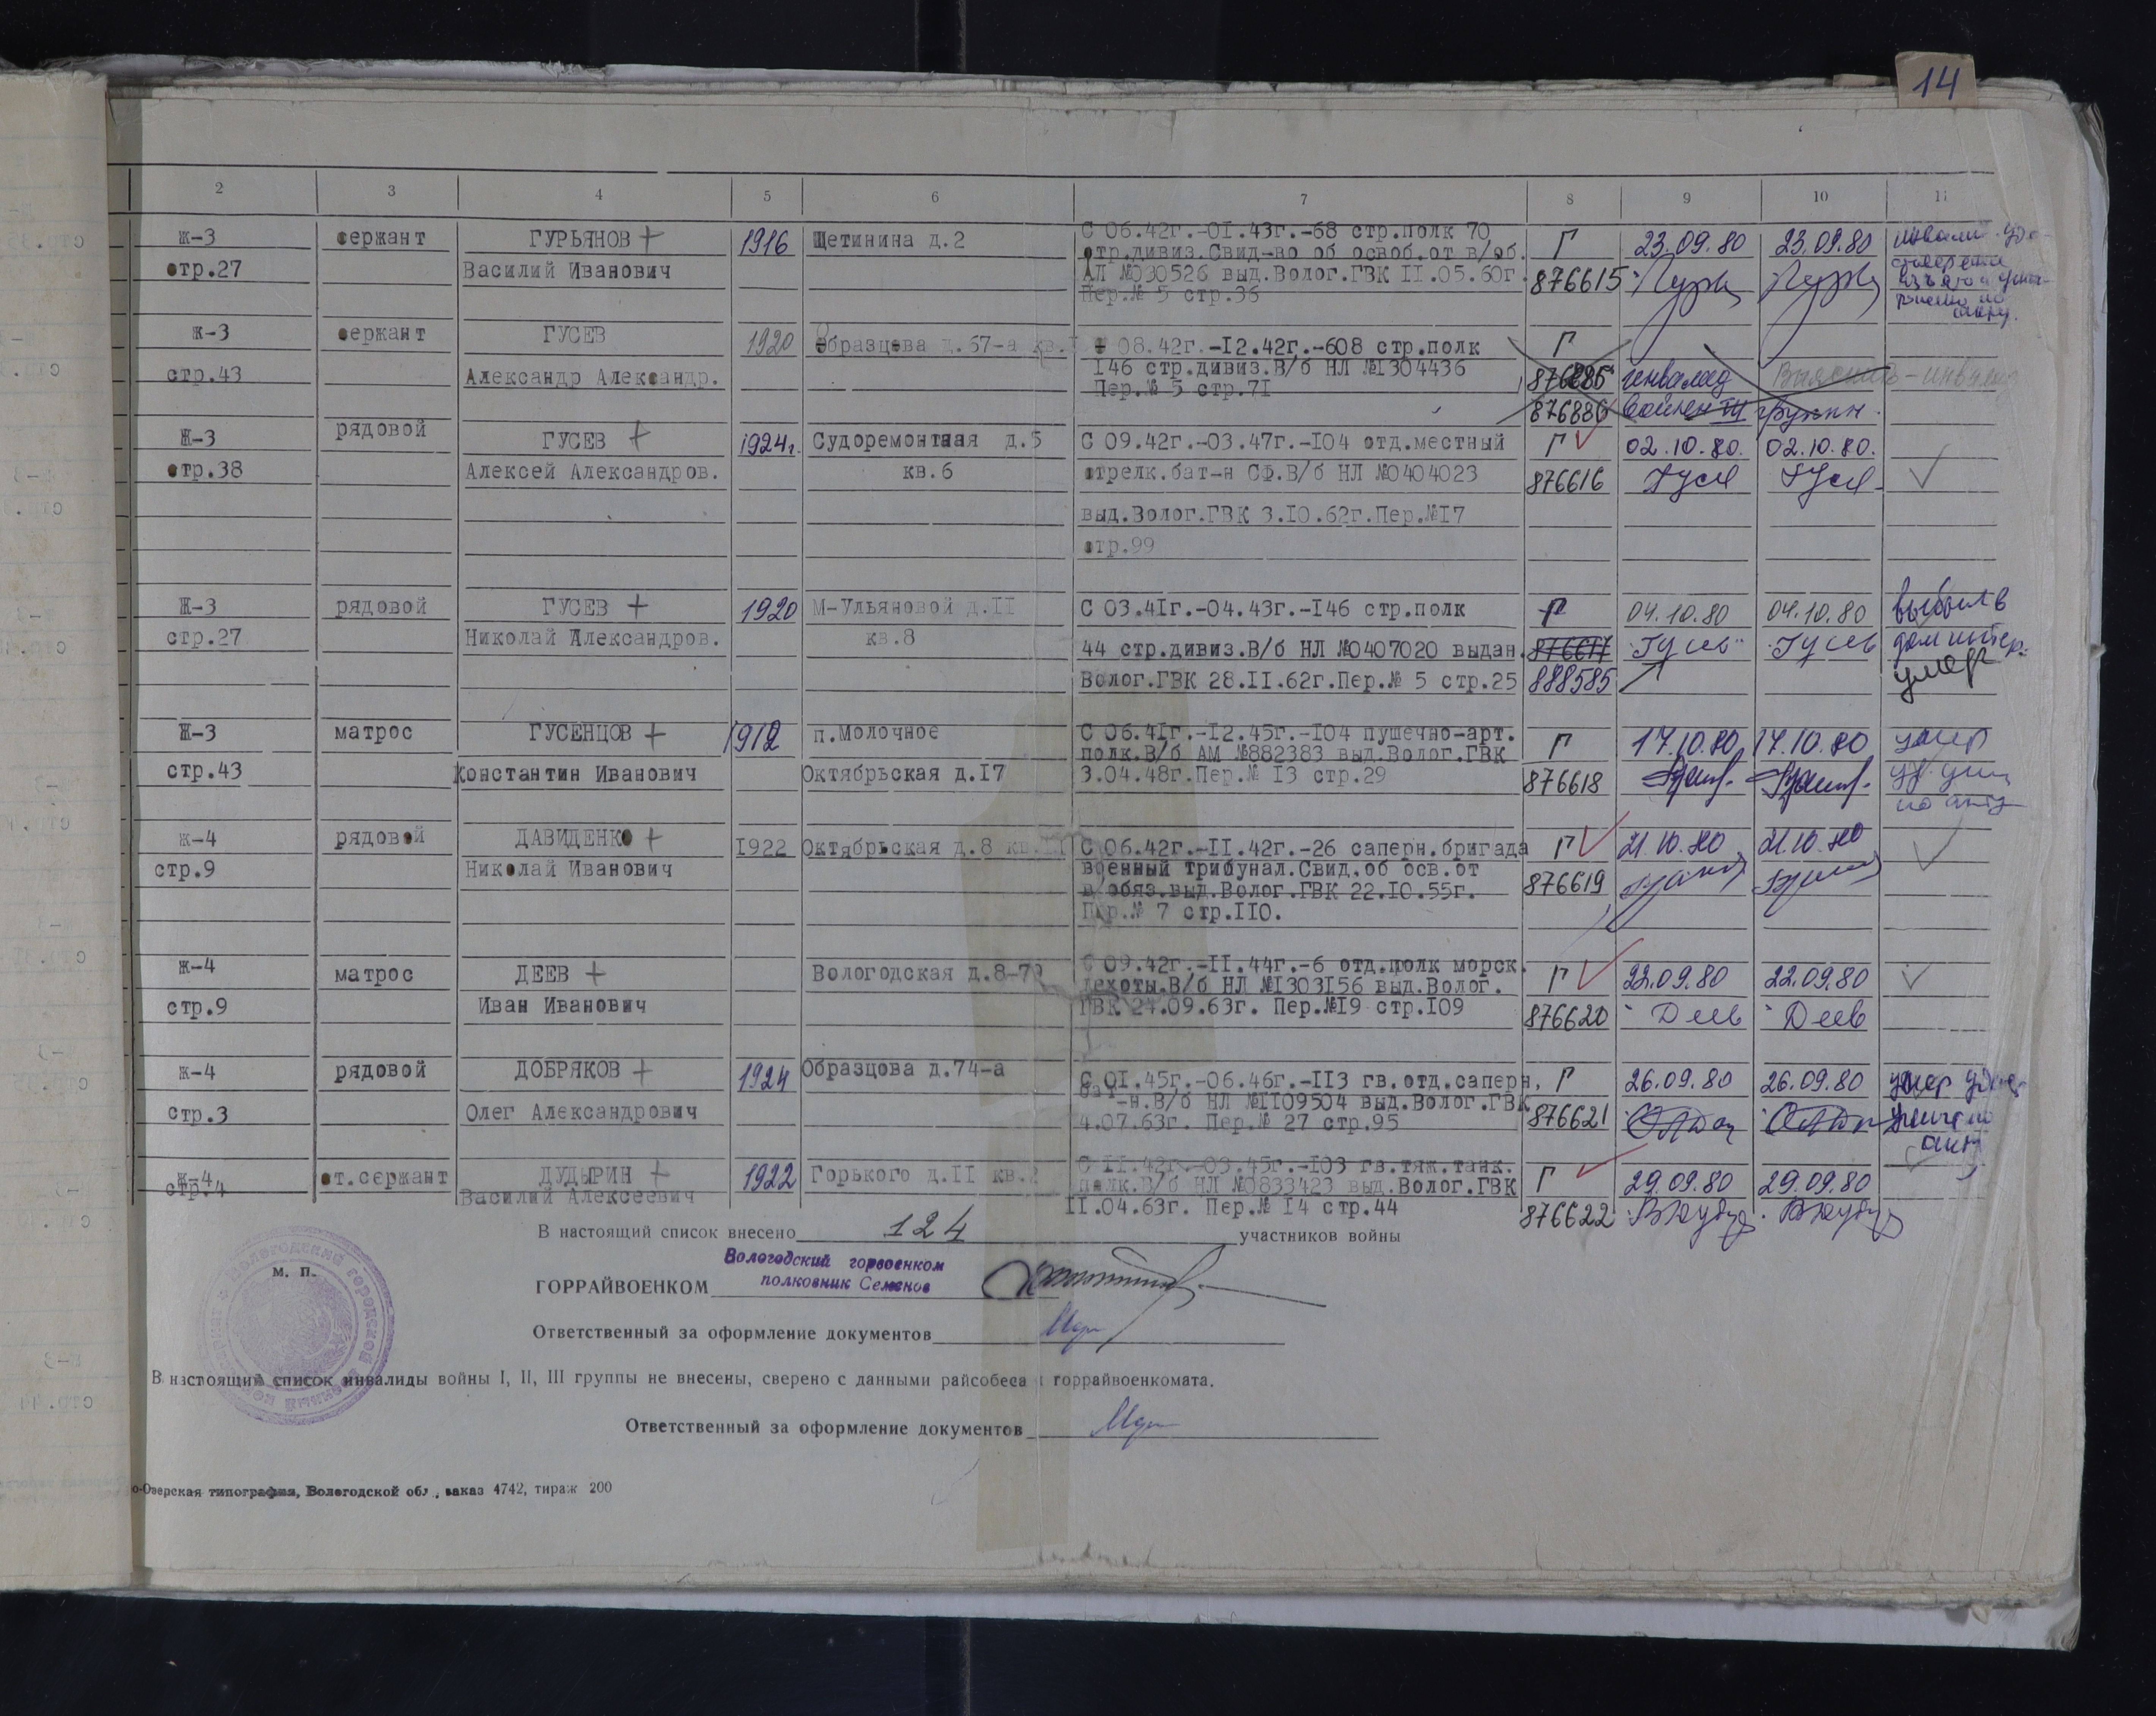 14
2 3 4 5 6 7 8 9 10 11
ж-3 сержант ГУРЬЯНОВ + 1916 Щетинина д.2 С 06.42г.-01.43г.-68 стр.полк 70 Г 23.09.80 23.09.80
стр.27 Василий Иванович стр.дивиз.Свид-во об освоб.от в/об.
АЛ №030526 выд.Волог.ГВК II.05.60г. 876615
Пер.№ 5 стр.36
ж-3 сержант ГУСЕВ 1920 Образцова д.67-а кв. С 08.42г.-12.42г.-608 стр.полк Г
стр.43 Александр Александр. 146 стр.дивиз.В/б НЛ №1304436 инвалид Выяснить - инвалид
Пер.№ 5 стр.71 876886 войны III группы.
Ж-3 рядовой ГУСЕВ + 1924г. Судоремонтная д.5 С 09.42г.-03.47г.-104 отд.местный Г 02.10.80. 02.10.80.
стр.38 Алексей Александров. кв.6 стрелк.бат-н СФ.В/б НЛ №0404023 876616 Гусев Гусев
выд.Волог.ГВК 3.10.62г.Пер.№17
стр.99
Ж-3 рядовой ГУСЕВ + 1920 М-Ульяновой д.II С 03.41г.-04.43г.-146 стр.полк Г 04.10.80 04.10.80 выбыл в
стр.27 Николай Александров. кв.8 44 стр.дивиз.В/б НЛ №0407020 выдан. 876617 Гусев Гусев дом интер.
Волог.ГВК 28.II.62г.Пер.№ 5 стр.25 888585 умер
Ж-3 матрос ГУСЕНЦОВ + 1912 п.Молочное С 06.41г.-12.45г.-104 пушечно-арт. Г 17.10.80 17.10.80 умер
полк.В/б АМ №882383 выд.Волог.ГВК
стр.43 Константин Иванович Октябрьская д.17 3.04.48г.Пер.№ 13 стр.29 876618
по акту
ж-4 рядовой ДАВИДЕНКО + 1922 Октябрьская д.8 кв. С 06.42г.-II.42г.-26 саперн.бригада Г 21.10.80 21.10.80
стр.9 Николай Иванович военный трибунал.Свид.об осв.от
в/обяз.выд.Волог.ГВК 22.10.55г. 876619
Пер.№ 7 стр.110.
ж-4 матрос ДЕЕВ + Вологодская д.8-7 С 09.42г.-II.44г.-6 отд.полк морск. Г 22.09.80 22.09.80
пехоты.В/б НЛ №1303156 выд.Волог.
стр.9 Иван Иванович ГВК 24.09.63г. Пер.№19 стр.109 876620 Деев Деев
ж-4 рядовой ДОБРЯКОВ + 1924 Образцова д.74-а С 01.45г.-06.46г.-113 гв.отд.саперн. Г 26.09.80 26.09.80 умер
бат-н.В/б НЛ №1109504 выд.Волог.ГВК
стр.3 Олег Александрович 4.07.63г. Пер.№ 27 стр.95 876621
ж-4 ст.сержант ДУДЫРИН + 1922 Горького д.II кв. С II.42г.-03.45г.-103 гв.тяж.танк. Г 29.09.80 29.09.80
стр.4 Василий Алексеевич полк.В/б НЛ №0833423 выд.Волог.ГВК
II.04.63г. Пер.№ 14 стр.44 876622
В настоящий список внесено 124 участников войны
Вологодский горвоенком
м. п. ГОРРАЙВОЕНКОМ полковник Семенов
Ответственный за оформление документов
В настоящий список инвалиды войны I, II, III группы не внесены, сверено с данными райсобеса и горрайвоенкомата.
Ответственный за оформление документов
о-Озерская типография, Вологодской обл., заказ 4742, тираж 200